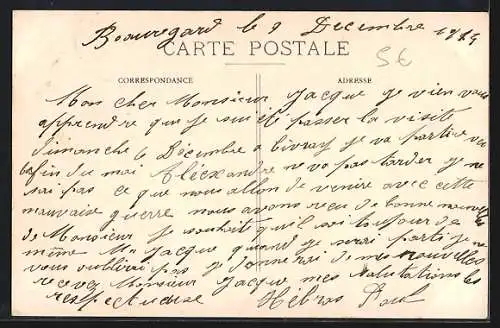 Beauregard le 9 Decembre 1914
CARTE POSTALE
5€
CORRESPONDANCE
ADRESSE
Mon cher Monsieur Jacque je vien vous
apprendre que je suis été passer la visite
dimanche 6 Décembre a livray je va partire vu
lafin du mai Aléexandre ne va pas tarder je ne
sai pas ce que nous allon de venire avec cette
mauvaise guerre nous avons reçu de bonne nouvelles
de Monsieur je souhaite qu'il soit toujour de
même Mr Jacque quand je serai parti je ne
vous oublirai pas je donnerai de mes nouvelles
recevez Monsieur Jacque mes salutations les
respectueuse Hebras Paul